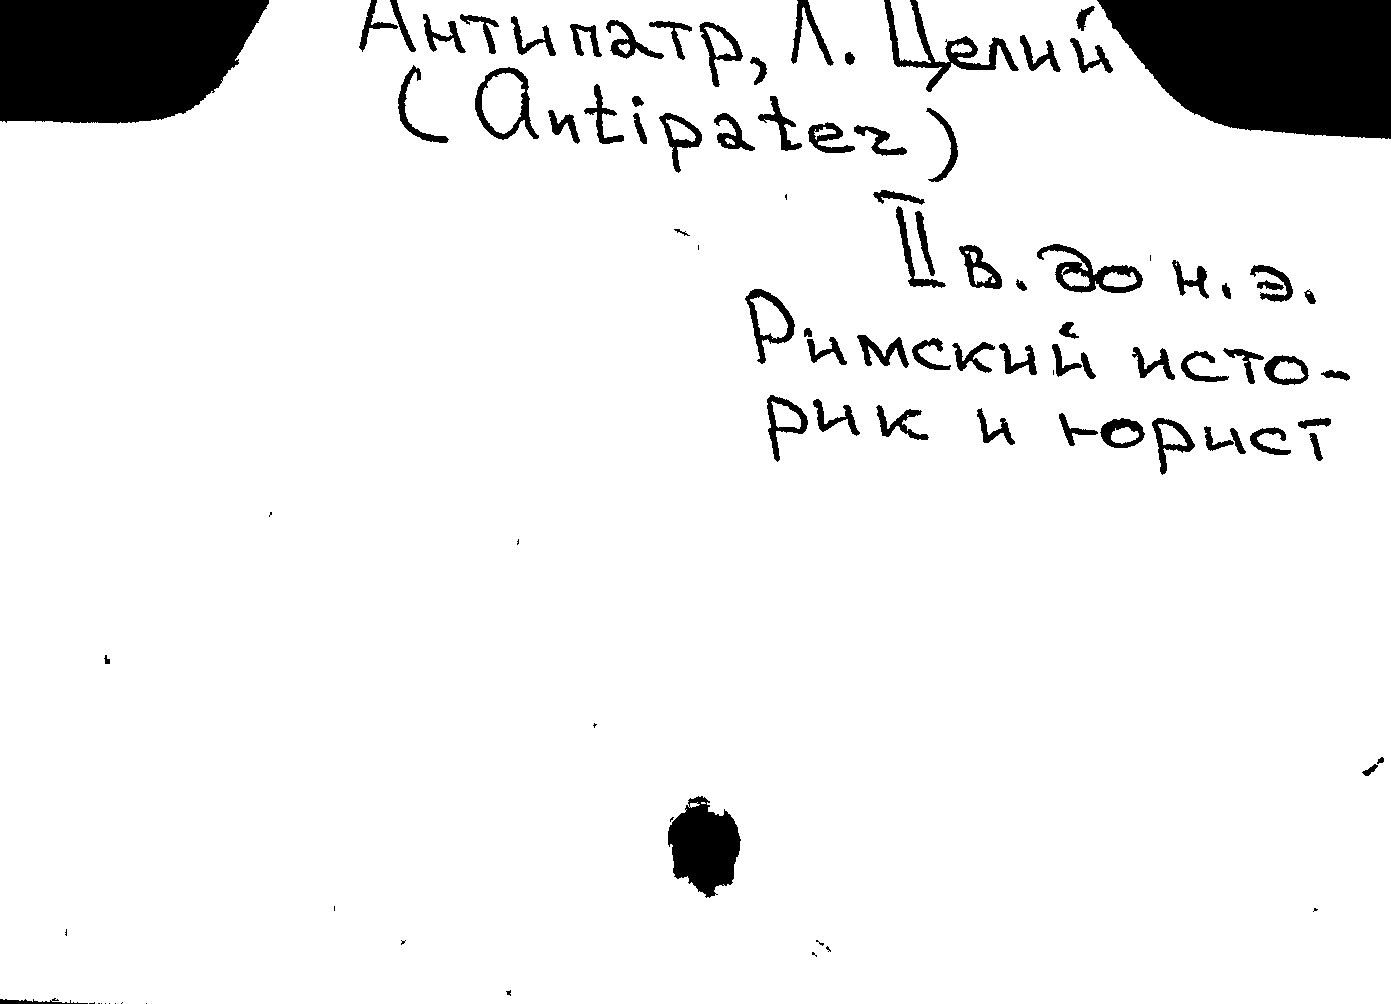 Антипатр, Л. Целий
(Antipater)
II в. до н. э.
Римский исто-
рик и юрист